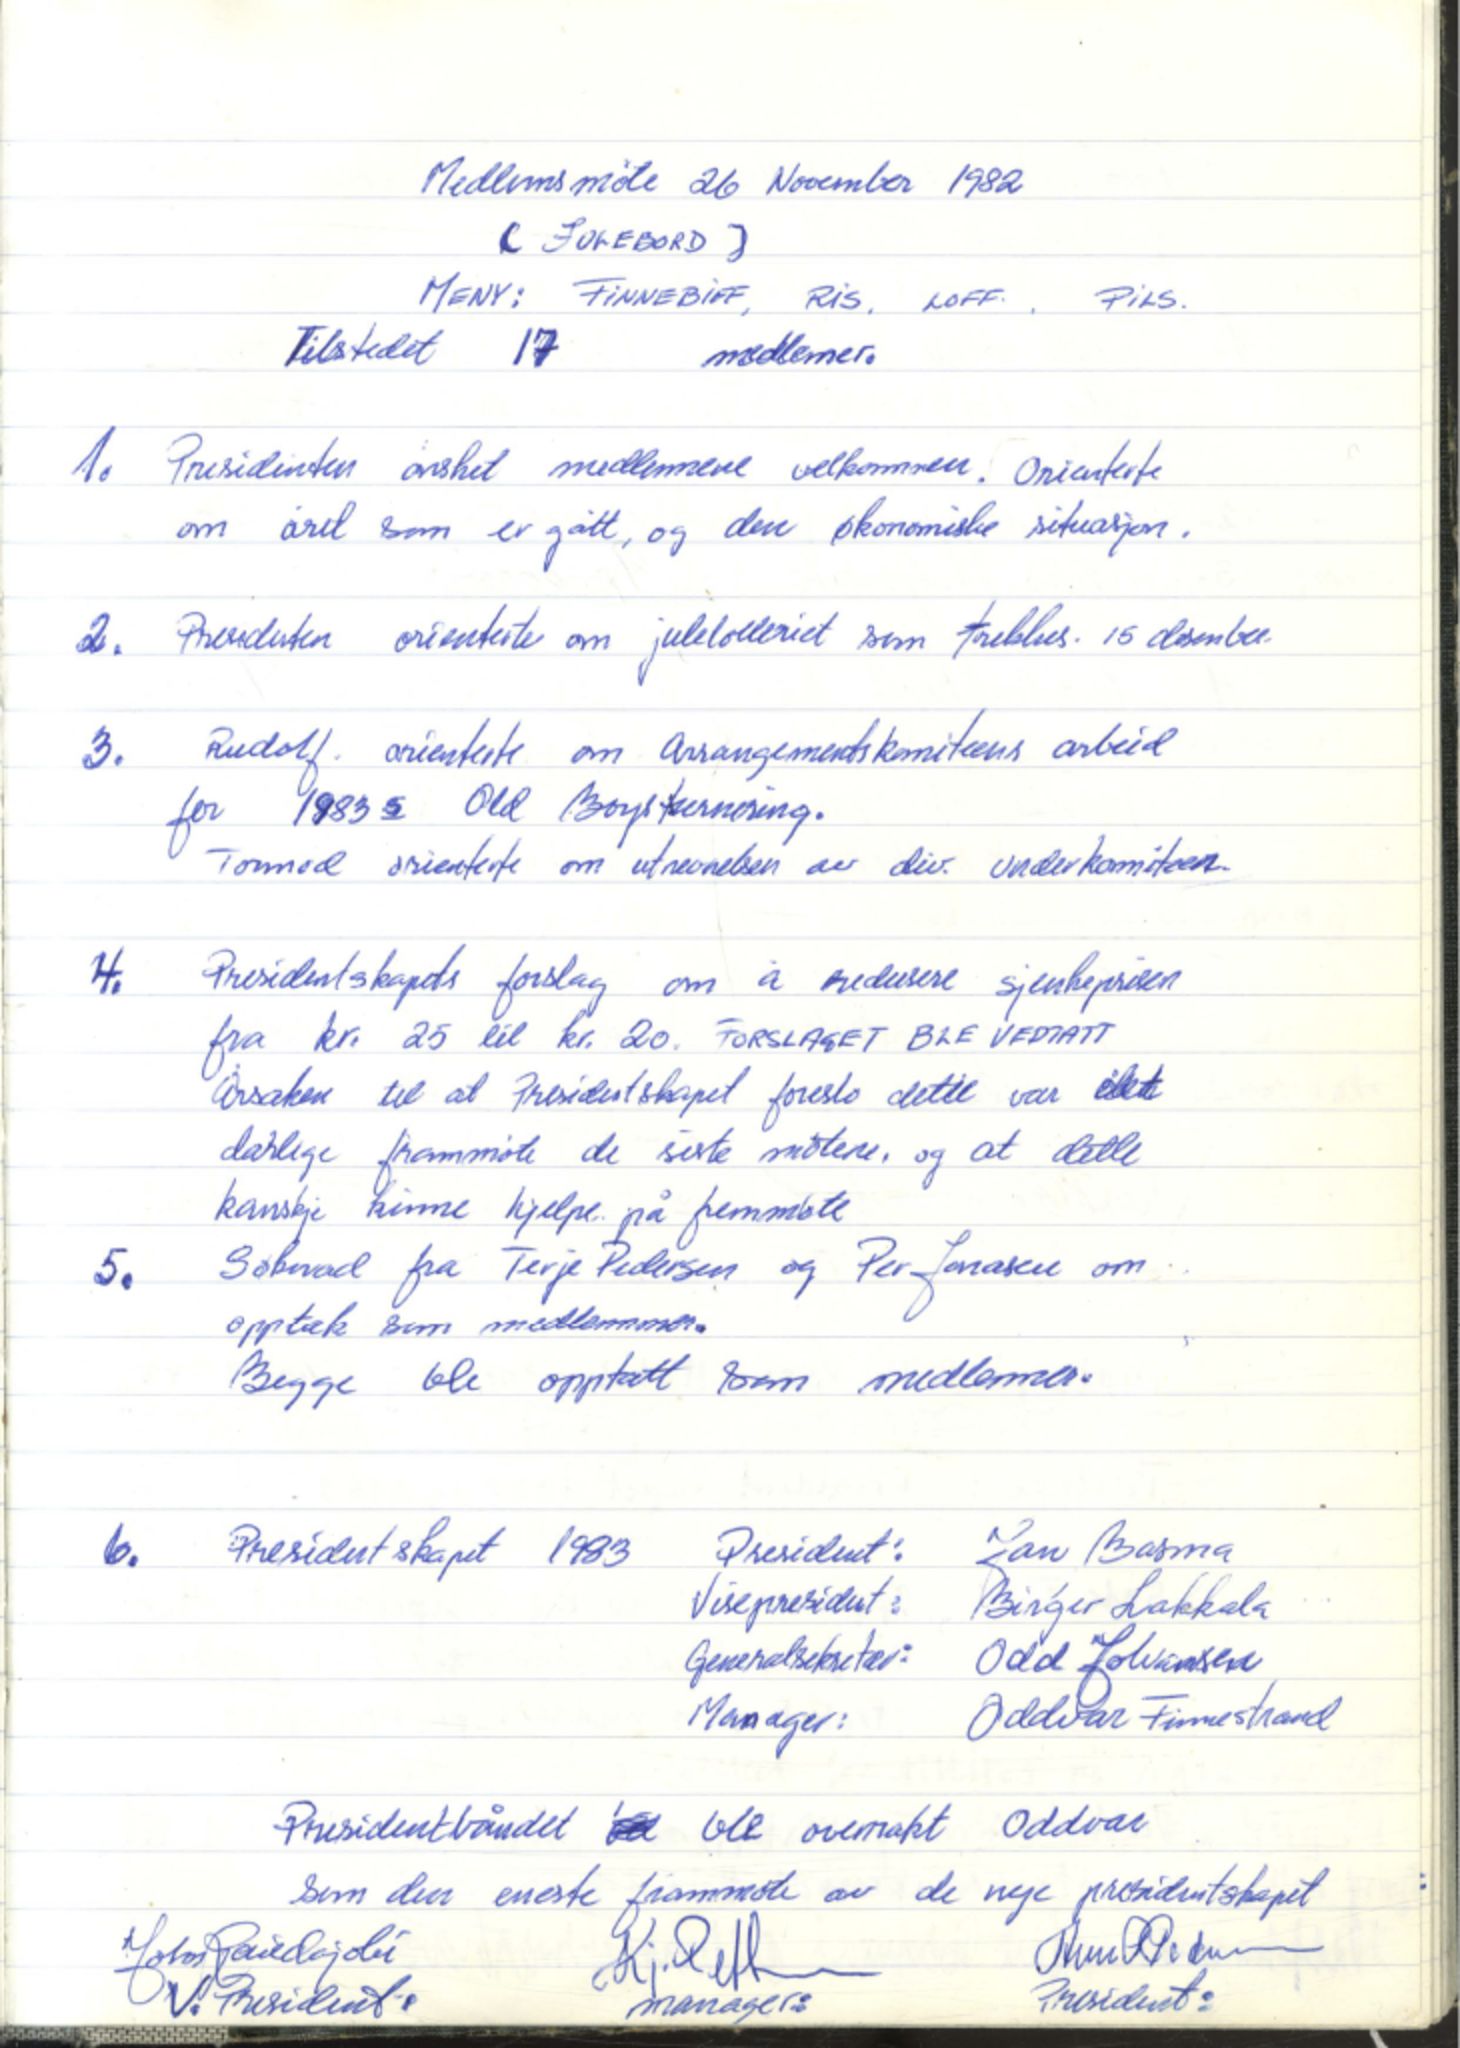 Medlemsmöte 26 November 1982
(JULEBORD)
MENY: FINNEBIFF, RIS, LOFF, PILS.
Tilstedet 17 medlemer.
1. Presidenten önsket medlemmene velkommen. Orienterte
om året som er gått, og den økonomiske situasjon.
2. Presidenten orienterte om julelotteriet som trekkes. 15 desember.
3. Rudolf. orienterte om Arrangementskomiteens arbeid
for 1983s Old Boysturnering.
Tormod orienterte om utnevnelsen av div. underkomiteer.
4. Presidentskapets forslag om å redusere sjenkeprisen
fra kr. 25 til kr. 20. FORSLAGET BLE VEDTATT
Årsaken til at Presidentskapet foreslo dette var det
dårlige frammöte de siste mötene. og at dette
kanskje kunne hjelpe på fremmöte
5. Söknad fra Terje Pedersen og Per Jonasen om
opptak som medlemmer.
Begge ble opptatt som medlemmer.
6. Presidentskapet 1983 President: Jan Basma
Visepresident: Birger Lakkala
Generalsekretær: Odd Johansen
Manager: Oddvar Finnestrand
Presidentbåndet ble overrakt Oddvar
som den eneste frammöte av de nye presidentskapet
V. President: manager: President: